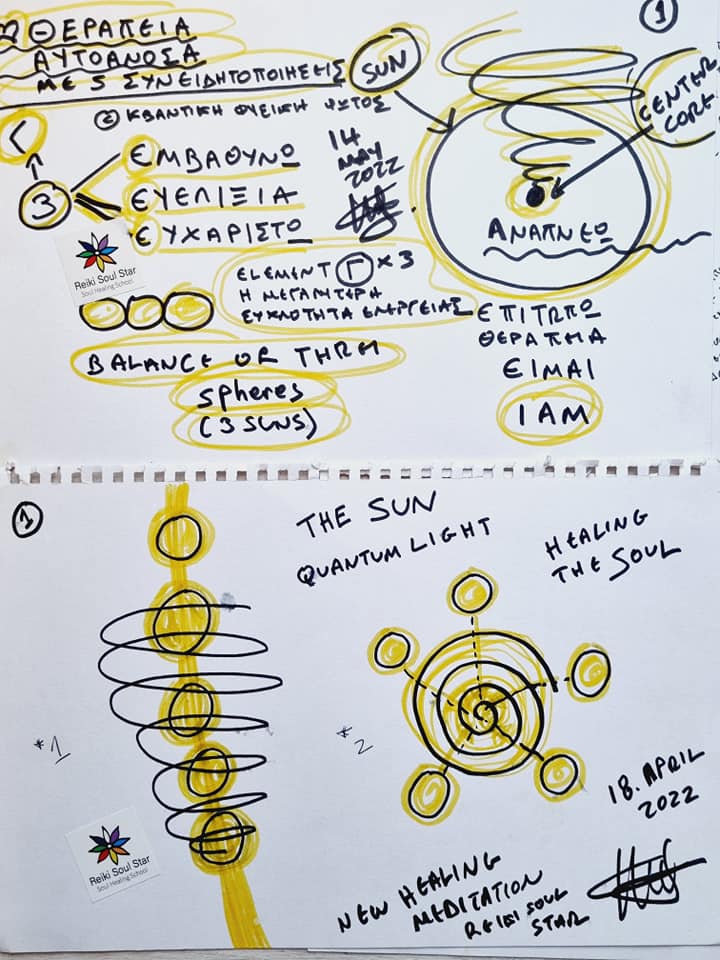 ΘΕΡΑΠΕΙΑ
ΑΥΤΟΑΝΟΣΑ
ΜΕ 5 ΣΥΝΕΙΔΗΤΟΠΟΙΗΣΕΙΣ
1
SUN
CENTER
CORE
ΚΒΑΝΤΙΚΗ ΦΥΣΙΚΗ ΦΩΤΟΣ
3
ΕΜΒΑΘΥΝΩ
ΕΥΕΛΙΞΙΑ
ΕΥΧΑΡΙΣΤΩ
14
MAY
2022
ΑΝΑΠΝΕΩ
Reiki Soul Star
Soul Healing School
ELEMENT Γ x 3
Η ΜΕΓΑΛΥΤΕΡΗ
ΕΥΚΛΟΤΗΤΑ ΕΝΕΡΓΕΙΑΣ
ΕΠΙΤΟΠΩ
ΘΕΡΑΠΜΑ
ΕΙΜΑΙ
I AM
BALANCE OF THRM
spheres
(3 SUNS)
1
THE SUN
QUANTUM LIGHT
HEALING
THE SOUL
*1
*2
18. APRIL
2022
Reiki Soul Star
Soul Healing School
NEW HEALING
MEDITATION
REIKI SOUL
STAR